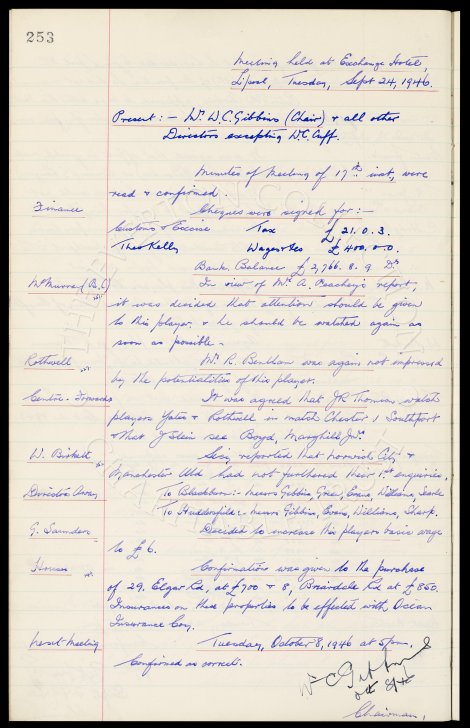 253
Meeting held at Exchange Hotel,
L'pool, Tuesday, Sept 24, 1946.
Present:- Mr. W.C. Gibbins (Chair) & all other
Directors excepting W.C. Cuff.
Minutes of Meeting of 17th inst, were
read & confirmed.
Finance
Cheques were signed for:-
Customs & Excise Tax £ 21. 0. 3.
Theo Kelly Wages &es £ 400. 0. 0.
Bank Balance £ 2,766. 8. 9 Dr.
McMurray
In view of Mr. A. report,
it was decided that attention should be given
to this player, & he should be watched again as
soon as possible.
Rothwell
Mr. R. Bentham was again not impressed
by the potentialities of this player.
Centre-Forwards
It was agreed that J.R. Thomson watch
players Yates & Rothwell in match Chester v Southport
& that J. Stein see Boyd, Maryhill Jnr.
W. Birkett
Sec. reported that Norwich City &
Manchester Utd had not furthered their 1st enquiries.
Directors Away
To Blackburn:- Messrs Gibbins, Green, Evans, Williams, Searle
To Huddersfield:- Messrs Gibbins, Evans, Williams, Sharp.
G. Saunders
Decided to increase this players basic wage
to £6.
Houses
Confirmation was given to the purchase
of 29, Elgar Rd, at £700 & 8, Briardale Rd at £850.
Insurances on these properties to be effected with Ocean
Insurance Coy.
Next Meeting
Tuesday, October 8, 1946 at 5pm.
Confirmed as correct.
W C Gibbins
Oct 8/46
Chairman,